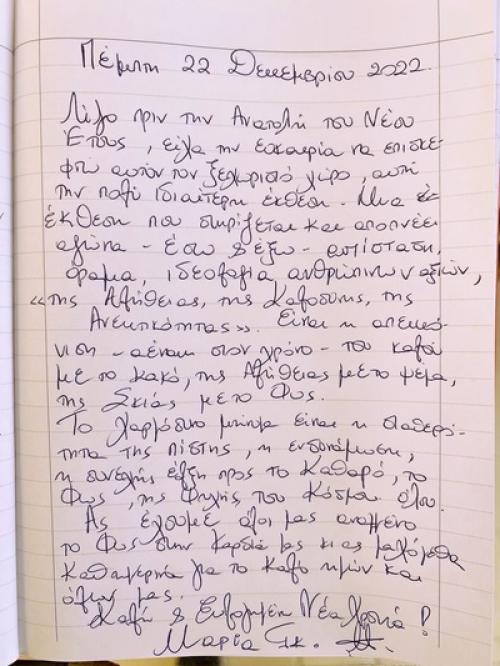 Πέμπτη 22 Δεκεμβρίου 2022.
Λίγο πριν την Ανατολή του Νέου
Έτους, είχα την ευκαιρία να επισκε-
φτώ αυτόν τον ξεχωριστό χώρο, αυτή
την πολύ ιδιαίτερη έκθεση. Μια
έκθεση που στηρίζεται και αποπνέει
αγώνα - έσω & έξω - αντίσταση,
όραμα, ιδεολογία ανθρώπινων αξιών,
«της Αλήθειας, της Καλοσύνης, της
Ανεκτικότητας». Είναι η απεικό-
νιση - αέναη στον χρόνο - του καλού
με το κακό, της Αλήθειας με το ψέμα,
της Σκιάς με το Φως.
Το χαρμόσυνο μήνυμα είναι η σταθερό-
τητα της πίστης, η ενδυνάμωση,
η συνεχής έλξη προς το Καθαρό, το
Φως, της Ψυχής του Κόσμου όλου.
Ας έχουμε όλοι μας αναμμένο
το Φως στην καρδιά μας κι ας μαλώμεθα
καθημερινά για το καλό ημών και
όλων μας.
Καλή & Ευλογημένη Νέα Χρονιά!
Μαρία Γκ.